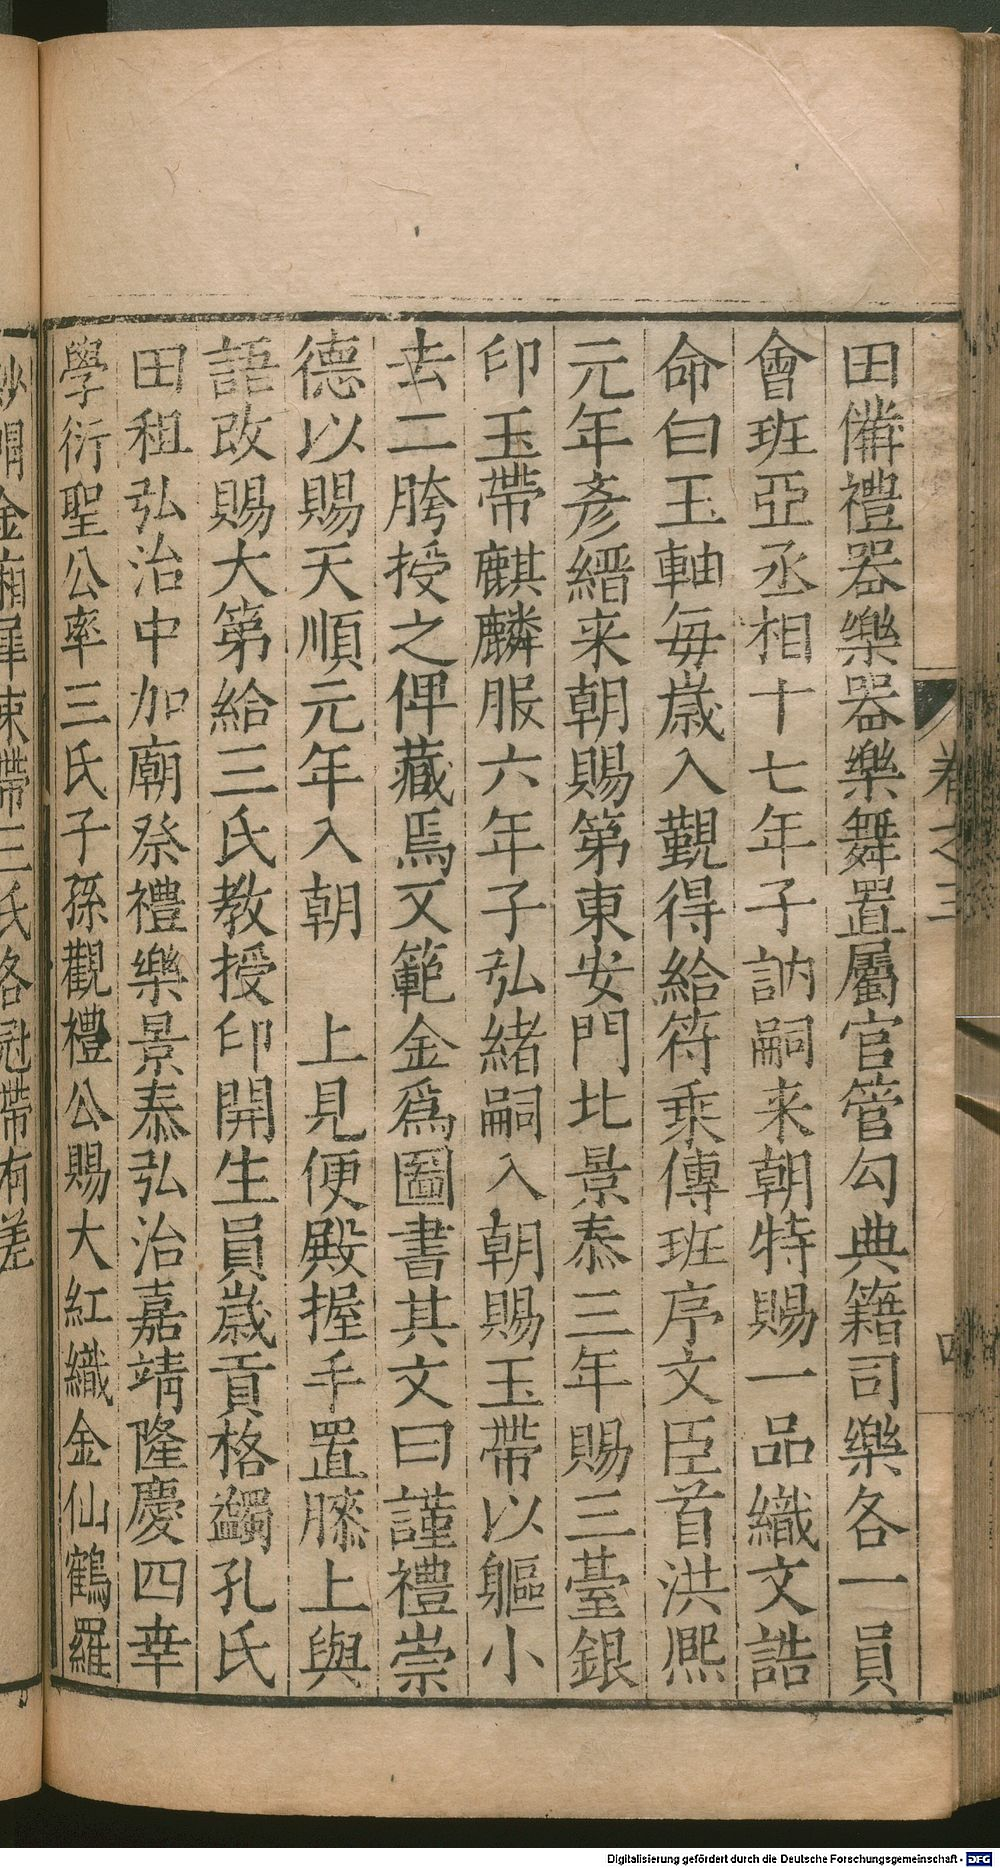 卷之三
四
田備禮器樂器樂舞置屬官管勾典籍司樂各一員
會班亞丞相十七年子訥嗣来朝特賜一品織文誥
命白玉軸毎歲入覲得給符乘傳班序文臣首洪熈
元年彦縉来朝賜第東安門北景泰三年賜三臺銀
印玉帶麒麟服六年子弘緒嗣入朝賜玉帶以軀小
去二胯授之俾藏焉又範金爲圖書其文曰謹禮崇
德以賜天順元年入朝　上見便殿握手置膝上與
語改賜大第給三氏教授印開生員歲貢格蠲孔氏
田租弘治中加廟祭禮樂景泰弘治嘉靖隆慶四幸
學衍聖公率三氏子孫觀禮公賜大紅織金仙鶴羅
金廂犀束帶三氏各冠帶有差
Digitalisierung gefördert durch die Deutsche Forschungsgemeinschaft - DFG